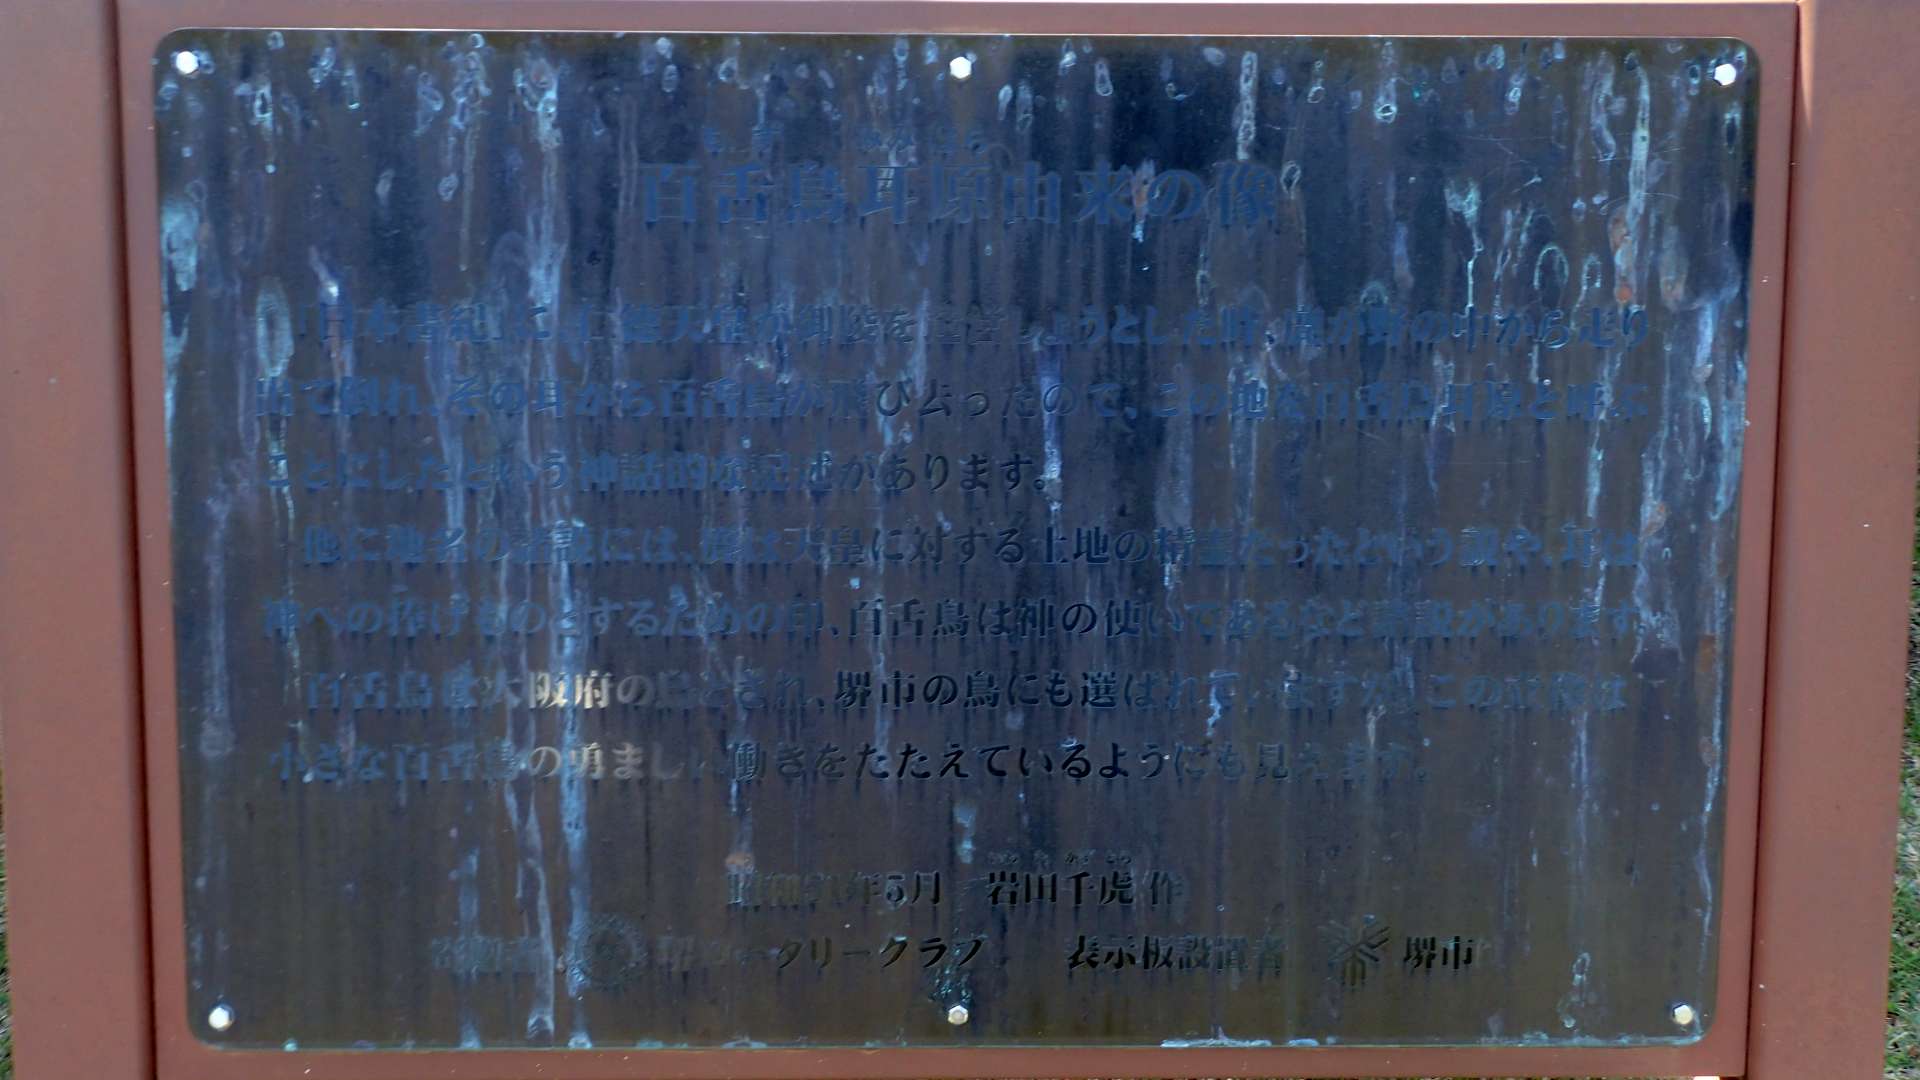 もず みみはら
百舌鳥耳原由来の像
「日本書紀」に、仁徳天皇が御陵を造営しようとした時、鹿が野の中から走り
出て倒れ、その耳から百舌鳥が飛び去ったので、この地を百舌鳥耳原と呼ぶ
ことにしたという神話的な記述があります。
他に地名の諸説には、鹿は天皇に対する土地の精霊だったという説や、耳は
神への捧げものとするための印、百舌鳥は神の使いであるなど諸説があります。
百舌鳥は大阪府の鳥とされ、堺市の鳥にも選ばれていますが、この立像は
小さな百舌鳥の勇ましい働きをたたえているようにも見えます。
いわ た かず とら
年5月 岩田千虎 作
堺ロータリークラブ 表示板設置者 堺市